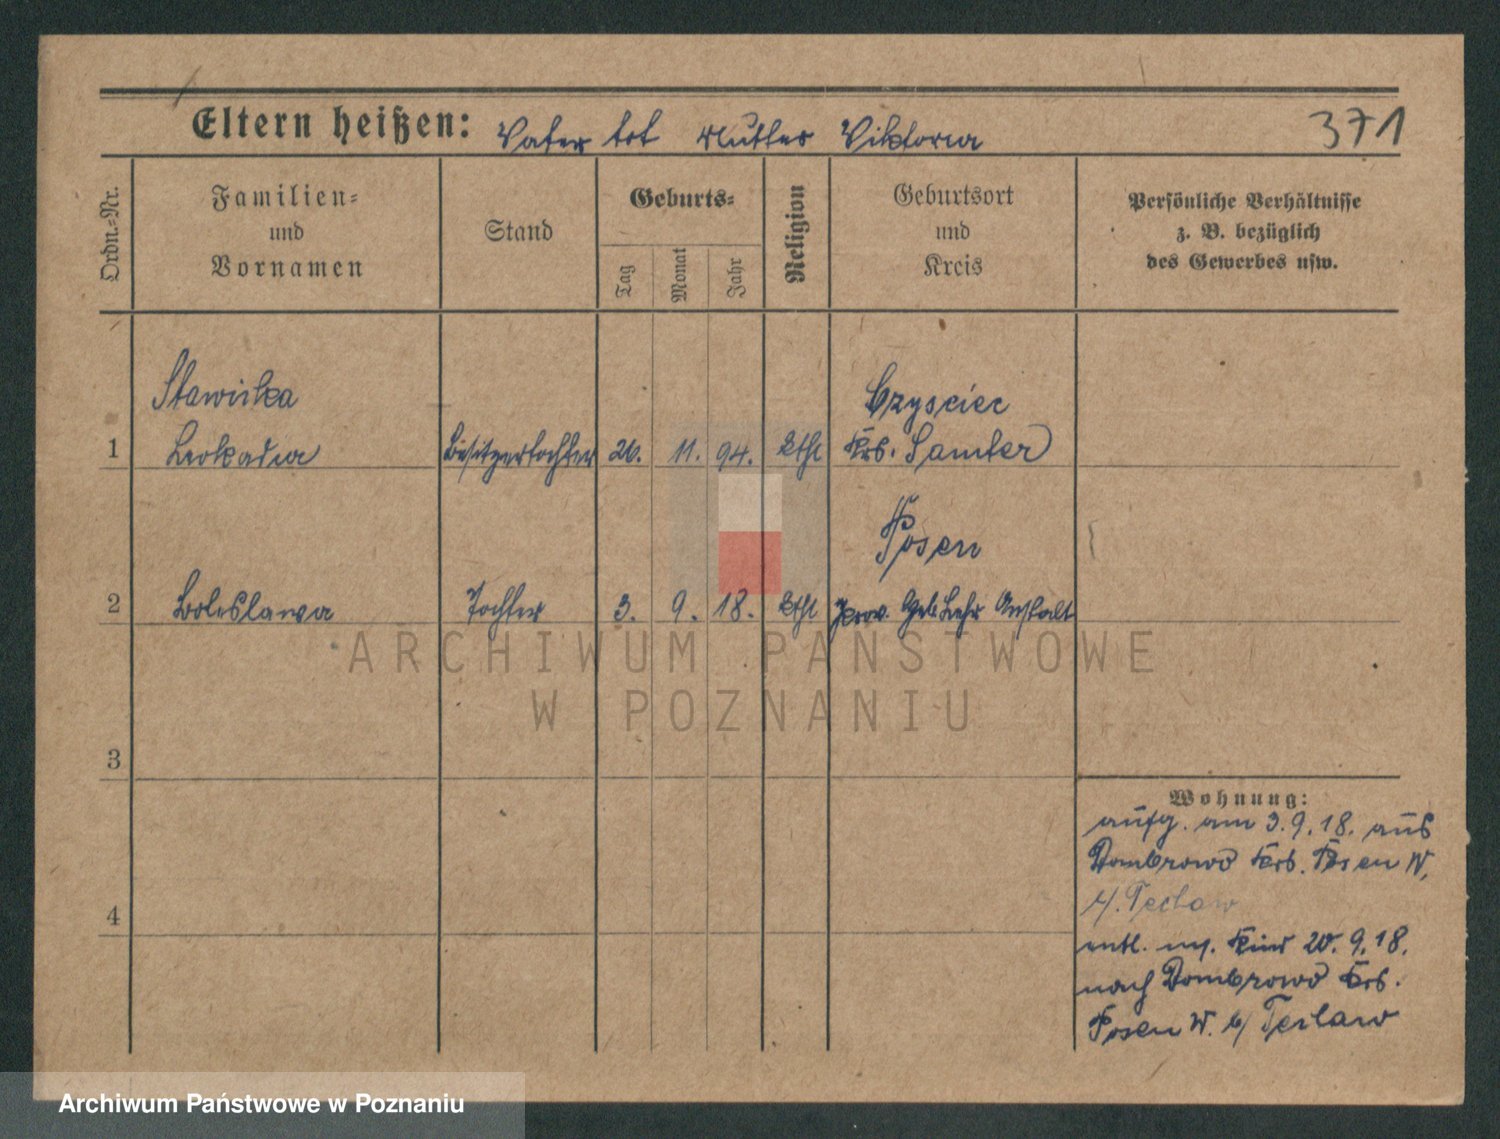 Eltern heißen: Vater tot Mutter Viktoria 371
Ordn.-Nr.
Familien-
und
Vornamen
Stand
Geburts-
Tag
Monat
Jahr
Religion
Geburtsort
und
Kreis
Persönliche Verhältnisse
z. B. bezüglich
des Gewerbes usw.
Stawicka
Leokadia
1
Besitzertochter 26. 11. 94. kthl
Czyściec
Krs. Samter
Posen
2 Boleslawa Tochter 3. 9. 18. kthl Prov. Geb Lehr Anstalt
3
4
Wohnung:
aufg. am 3.9.18. aus
Dombrowo Krs. Posen W.
b/
entl. m. Kind 20.9.18.
nach Dombrowo Krs.
Posen W. b/
ARCHIWUM PAŃSTWOWE
W POZNANIU
Archiwum Państwowe w Poznaniu